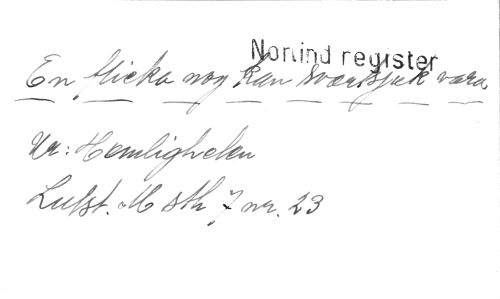 Norlind register
En flicka nog kan svartsjuk vara
Ur: Hemligheten
Lustst. M sth 7 nr. 23